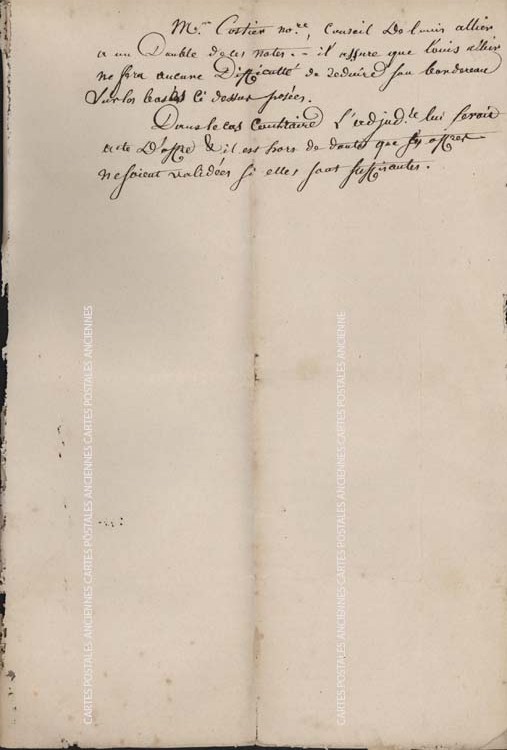 M.re Costier no.re, Conseil De louis allier
a un Double de ces notes. - il assure que louis allier
ne fera aucune Difficulté de reduire son bordereau
Sur les bases ci dessus posées.
Dans le cas Contraire l'adjud.re lui feroit
acte D'offre & il est hors de doute que ses offres
ne soient validées si elles sont suffisantes.
CARTES POSTALES ANCIENNES CARTES POSTALES ANCIENNES CARTES POSTALES ANCIENNES
CARTES POSTALES ANCIENNES CARTES POSTALES ANCIENNES CARTES POSTALES ANCIENNES